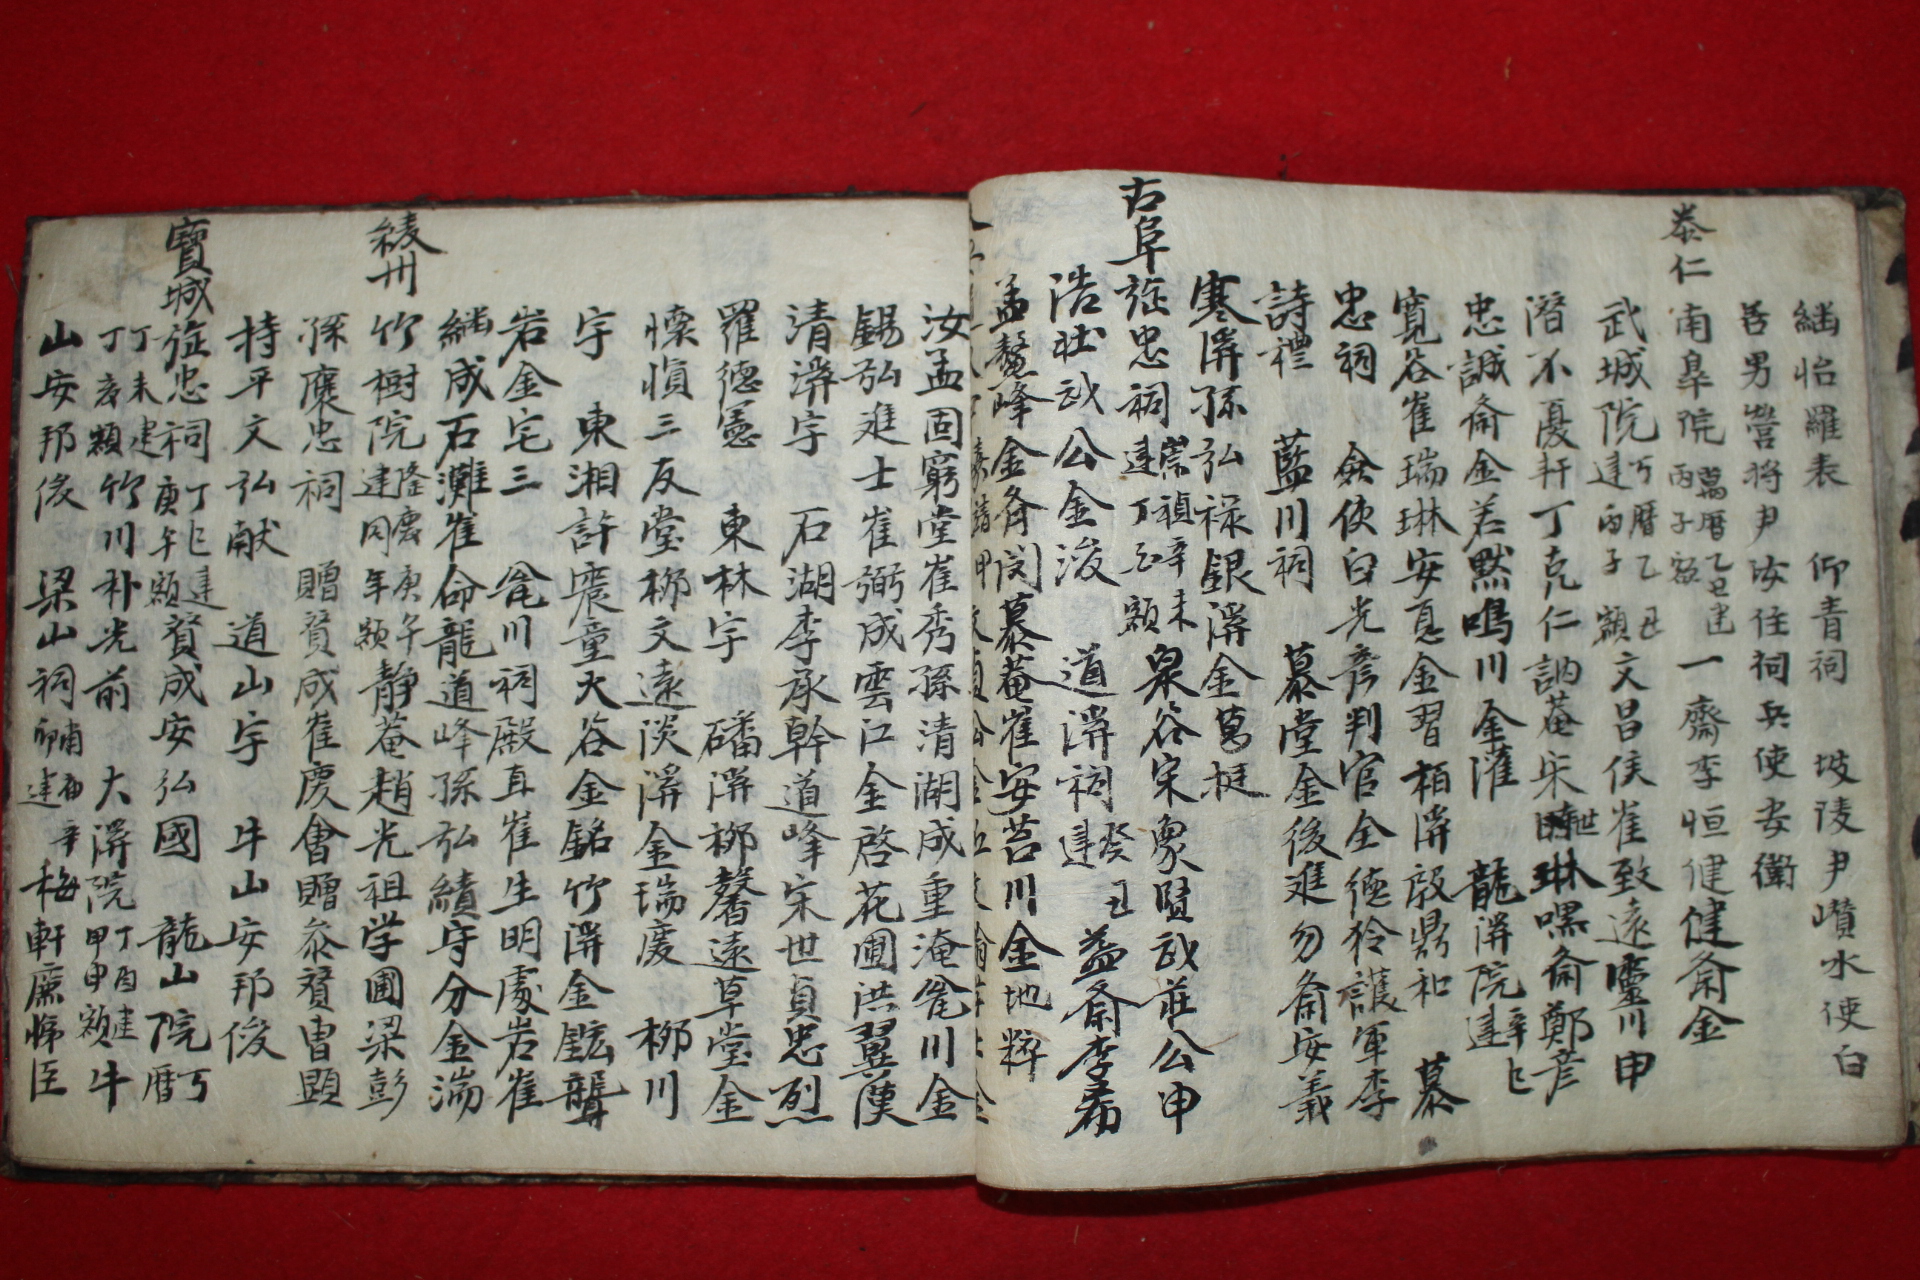 緬怡羅表 仰青祠 坡陵尹巑水使白
善男營將尹汝任祠兵使安衛
泰仁
南臯院萬曆乙丑建丙子額一齋李恒健齋金
武城院万曆乙丑建丙子額文昌侯崔致遠靈川申
潛不憂軒丁克仁訥菴宋世琳嘿齋鄭彦
忠誠齋金若默鳴川金灌 龍溪院辛巳建
寬谷崔瑞琳安息金習栢溪殷鼎和 慕
忠祠 僉使白光彦判官金德秢護軍李
詩禮 藍川祠 慕堂金後進勿齋安義
寒溪孫弘祿銀溪金萬挺
古阜
旌忠祠崇禎辛未建丁丑額泉谷宋象賢武莊公申
浩壯武公金浚 道溪祠癸丑建益齋李希
孟鰲峰金齊閔慕菴崔安苕川金地粹
汝孟固窮堂崔秀孫清湖成重淹瓮川金
錫弘進士崔弼成雲江金啓花圃洪翼漢
清溪宇 石湖李承幹道峰宋世貞忠烈
羅德憲 東林宇 磻溪柳馨遠草堂金
懷愼三友堂柳文遠淡溪金瑞慶 柳川
宇 東湘許震童大谷金銘竹溪金鋐龔
岩金宅三 瓮川祠殿直崔生明處岩崔
繼成石灘崔命龍道峰孫弘績守分金湍
綾州
竹樹院隆慶庚午建同年額靜菴趙光祖学圃梁彭
孫褒忠祠 贈贊成崔慶會贈叅贊曺顯
持平文弘献 道山宇 牛山安邦俊
寶城
旌忠祠丁巳建庚午額贊成安弘國 龍山院万曆
丁未建丁亥額竹川朴光前 大溪院丁酉建甲申額牛
山安邦俊 梁山祠 梅軒廉悌臣